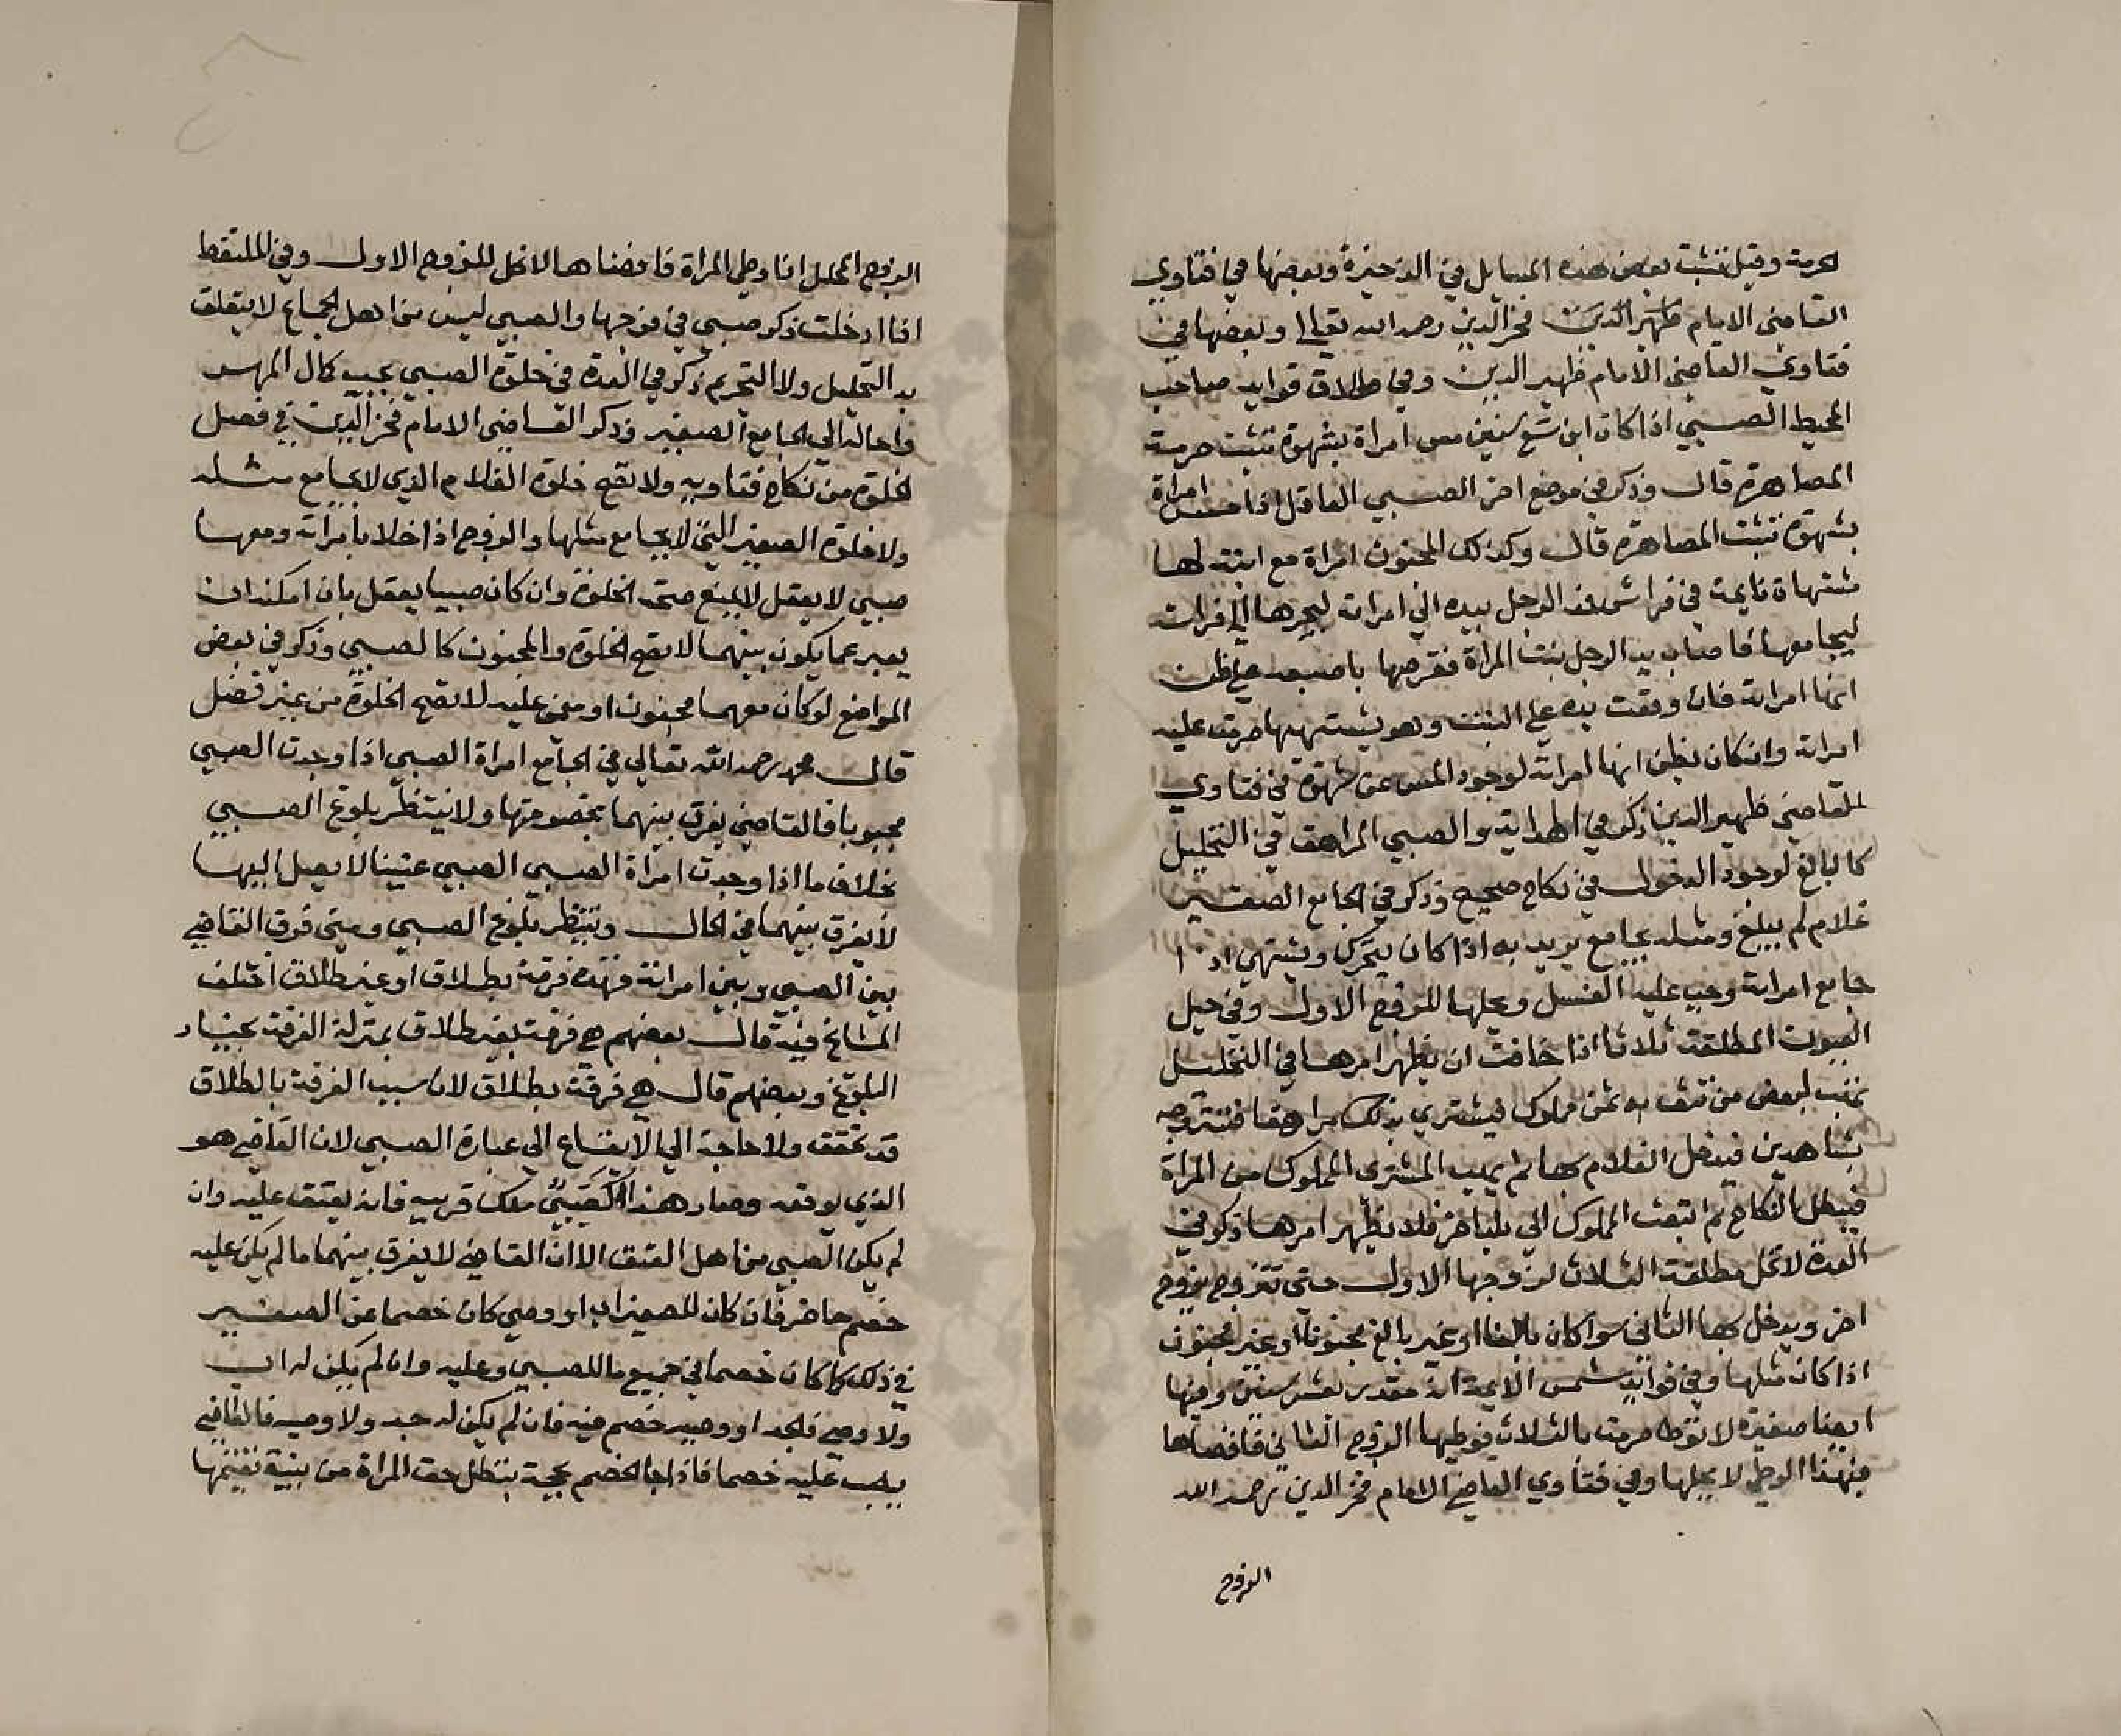 حرمة وقيل تثبت بعض هذه المسايل في الذخيرة وبعضها في فتاوي
القاضي الامام ظهير الدين فخر الدين رحمه الله تعالى وبعضها في
فتاوي القاضي الامام ظهير الدين وفي طلاق فوايد صاحب
المحيط الصبي اذا كان ابن تسع سنين مس امراة بشهوة تثبت حرمة
المصاهرة قال وذكر في موضع اخر الصبي العاقل اذا مس امراة
بشهوة تثبت المصاهرة قال وكذلك المجنون امراة مع ابنة لها
مشتهاة نايمة في فراش فمد الرجل بيده الى امراته ليجرها الى فراشه
ليجامعها فاصاب يد الرجل بنت المراة فقرصها باصبعه على ظن
انها امراته فان وقعت يده على البنت وهو يشتهيها حرمت عليه
امراته وان كان يظن انها امراته لوجود المس عن شهوة في فتاوي
القاضي ظهير الدين ذكر في الهداية والصبي المراهق في التحليل
كالبالغ لوجود الدخول في نكاح صحيح وذكر في الجامع الصغير
غلام لم يبلغ ومثله يجامع يريد به اذا كان يتحرك ويشتهي اذا
جامع امراته وجب عليه الغسل ويحلها للزوج الاول وفي حيل
العيون المطلقة ثلاثا اذا خافت ان يظهر امرها في التحليل
تهب لبعض من تثق به ثمن مملوك فيشتري بذلك مراهقا فتتزوجه
بشاهدين فيدخل الغلام بها ثم يهب المشتري المملوك من المراة
فيبطل النكاح ثم تبعث المملوك الى بلد اخر فلا يظهر امرها ذكر في
العدة لا تحل مطلقة الثلاث لزوجها الاول حتى تتزوج بزوج
اخر ويدخل بها الثاني سوا كان بالغا او غير بالغ مجنونا او غير مجنون
اذا كان مثلها وفي فوايد شمس الايمة انه مقدر بعشر سنين وفيها
ايضا صغيرة لا توطا حرمت بالثلاث فوطيها الزوج الثاني فافضاها
فهذا الوطي لا يحلها وفي فتاوي القاضي الامام فخر الدين رحمه الله
الزوج
الزوج المحلل اذا وطي المراة فافضاها لا تحل للزوج الاول وفي الملتقط
اذا ادخلت ذكر صبي في فرجها والصبي ليس من اهل الجماع لا يتعلق
به التحليل ولا التحريم ذكر في العدة في خلوة الصبي يجب كمال المهر
واحاله الى الجامع الصغير وذكر القاضي الامام فخر الدين في فصل
الخلوة من نكاح فتاويه ولا تصح خلوة الغلام الذي لا يجامع مثله
ولا خلوة الصغير التي لا يجامع مثلها والزوج اذا خلا بامراته ومعها
صبي لا يعقل لا يمنع صحة الخلوة وان كان صبيا يعقل بان امكنه ان
يعبر عما يكون بينهما لا تصح الخلوة والمجنون كالصبي وذكر في بعض
المواضع لو كان معهما مجنون او مغمى عليه لا تصح الخلوة من غير فصل
قال محمد رحمه الله تعالى في الجامع امراة الصبي اذا وجدت الصبي
مجبوبا فالقاضي يفرق بينهما بخصومتها ولا ينتظر بلوغ الصبي
بخلاف ما اذا وجدت امراة الصبي الصبي عنينا لا يصل اليها
لا يفرق بينهما في الحال وينتظر بلوغ الصبي ومتى فرق القاضي
بين الصبي وبين امراته فهذه فرقة بطلاق او غير طلاق اختلف
المشايخ فيه قال بعضهم هي فرقة بغير طلاق بمنزلة الفرقة بخيار
البلوغ وبعضهم قال هي فرقة بطلاق لان سبب الفرقة بالطلاق
قد تحقق ولا حاجة الى الايقاع الى عبارة الصبي لان القاضي هو
الذي يوقعه وصار هذا كصبي ملك قريبه فانه يعتق عليه وان
لم يكن الصبي من اهل العتق الا ان القاضي لا يفرق بينهما ما لم يكن عليه
خصم حاضر فان كان للصغير اب او وصي كان خصما عن الصغير
في ذلك كما كان خصما في جميع ما للصبي وعليه وان لم يكن له اب
ولا وصي فالجد او وصيه خصم فيه فان لم يكن له جد ولا وصيه فالقاضي
ينصب عليه خصما فاذا جا الخصم بحجة تبطل حق المراة من بينة تقيمها